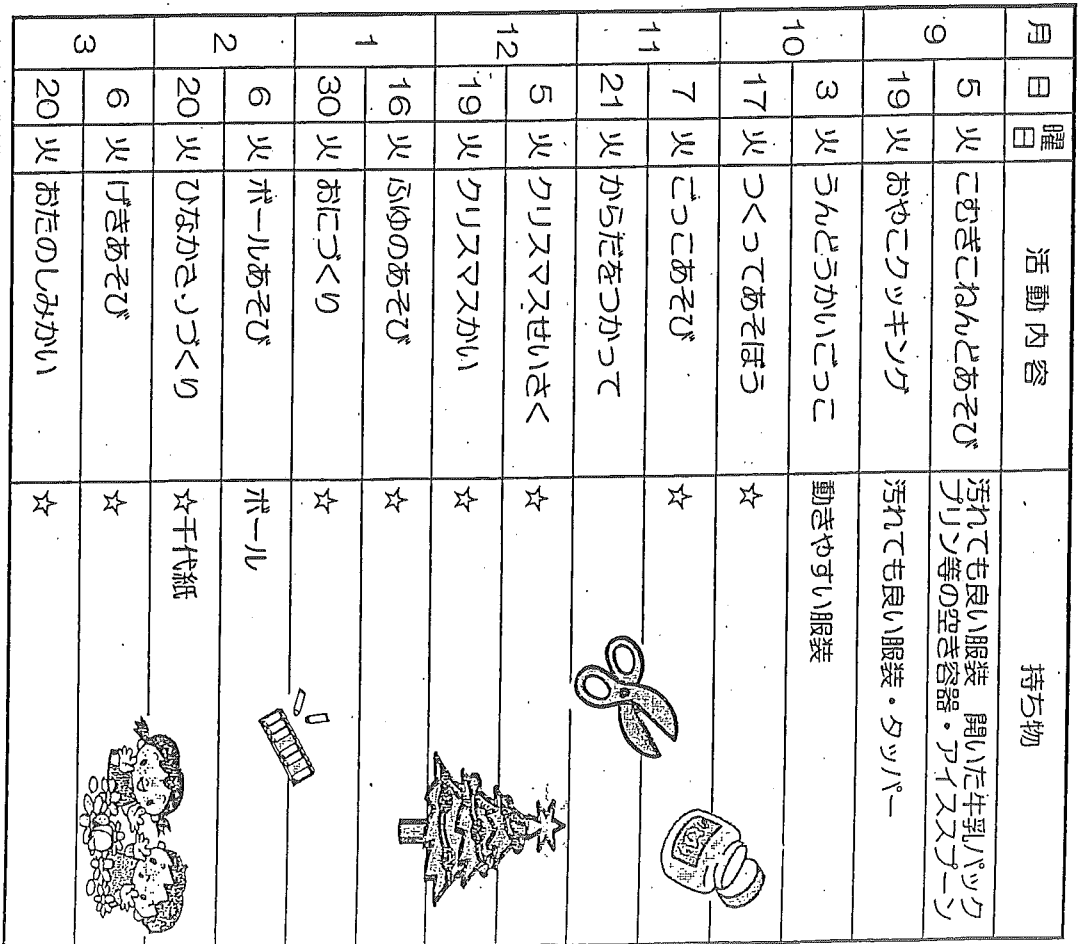 月 日 曜日 活動内容 持ち物
9 5 火 こむぎこねんどあそび 汚れても良い服装 開いた牛乳パック
プリン等の空き容器・アイススプーン
19 火 おやこクッキング 汚れても良い服装・タッパー
10 3 火 うんどうかいごっこ 動きやすい服装
17 火 つくってあそぼう ☆
11 7 火 ごっこあそび ☆
21 火 からだをつかって
12 5 火 クリスマスせいさく ☆
19 火 クリスマスかい ☆
1 16 火 ふゆのあそび ☆
30 火 おにづくり ☆
2 6 火 ボールあそび ボール
20 火 ひなかざりづくり ☆千代紙
3 6 火 げきあそび ☆
20 火 おたのしみかい ☆